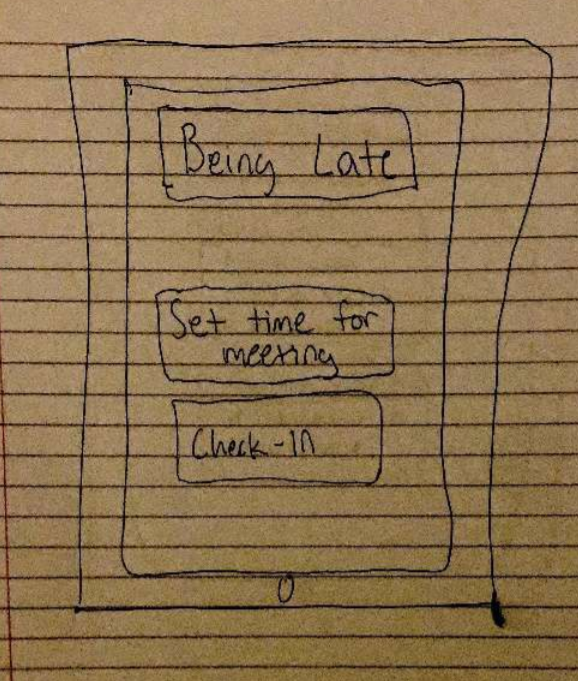 Being Late
Set time for
meeting
Check-In